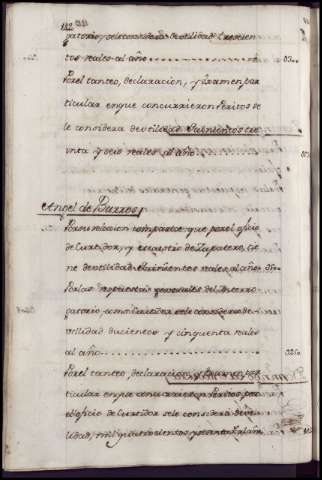 182
gatorio, se le considera de utilidad trescien
tos reales al año
Por el tanteo, declaracion, y examen par
ticular en que concurrieron Peritos se
le considera de utilidad quinientos tre
inta y seis reales al año
Angel de Burgos
Por su relacion comparece que por el oficio
de Curtidor, y maestro de Zapatero, tie
ne de utilidad quinientos reales al año
Por las respuestas generales del Interro
gatorio, a este Curtidor se le considera de
utilidad ducientos y cinquenta reales
al año
Por el tanteo, declaracion, y examen par
ticular en que concurrieron Peritos, por
el oficio de Curtidor se le considera de uti
lidad, mil quatrocientos